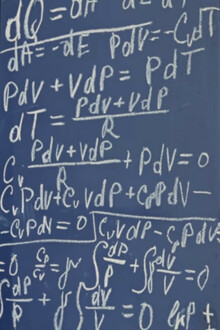 dQ = dA
dA = -dE PdV = -CvdT
PdV + VdP = PdT
dT = PdV + VdP / R
Cv PdV + VdP / R + PdV = 0
CvPdV + CvVdP + CpPdV -
-CvPdV = 0 CvVdP - CpPdV
=0 Cp/Cv = γ ∫dP/P + ∫γdV/V = 0
∫dP/P + γ∫dV/V = 0 lnP +